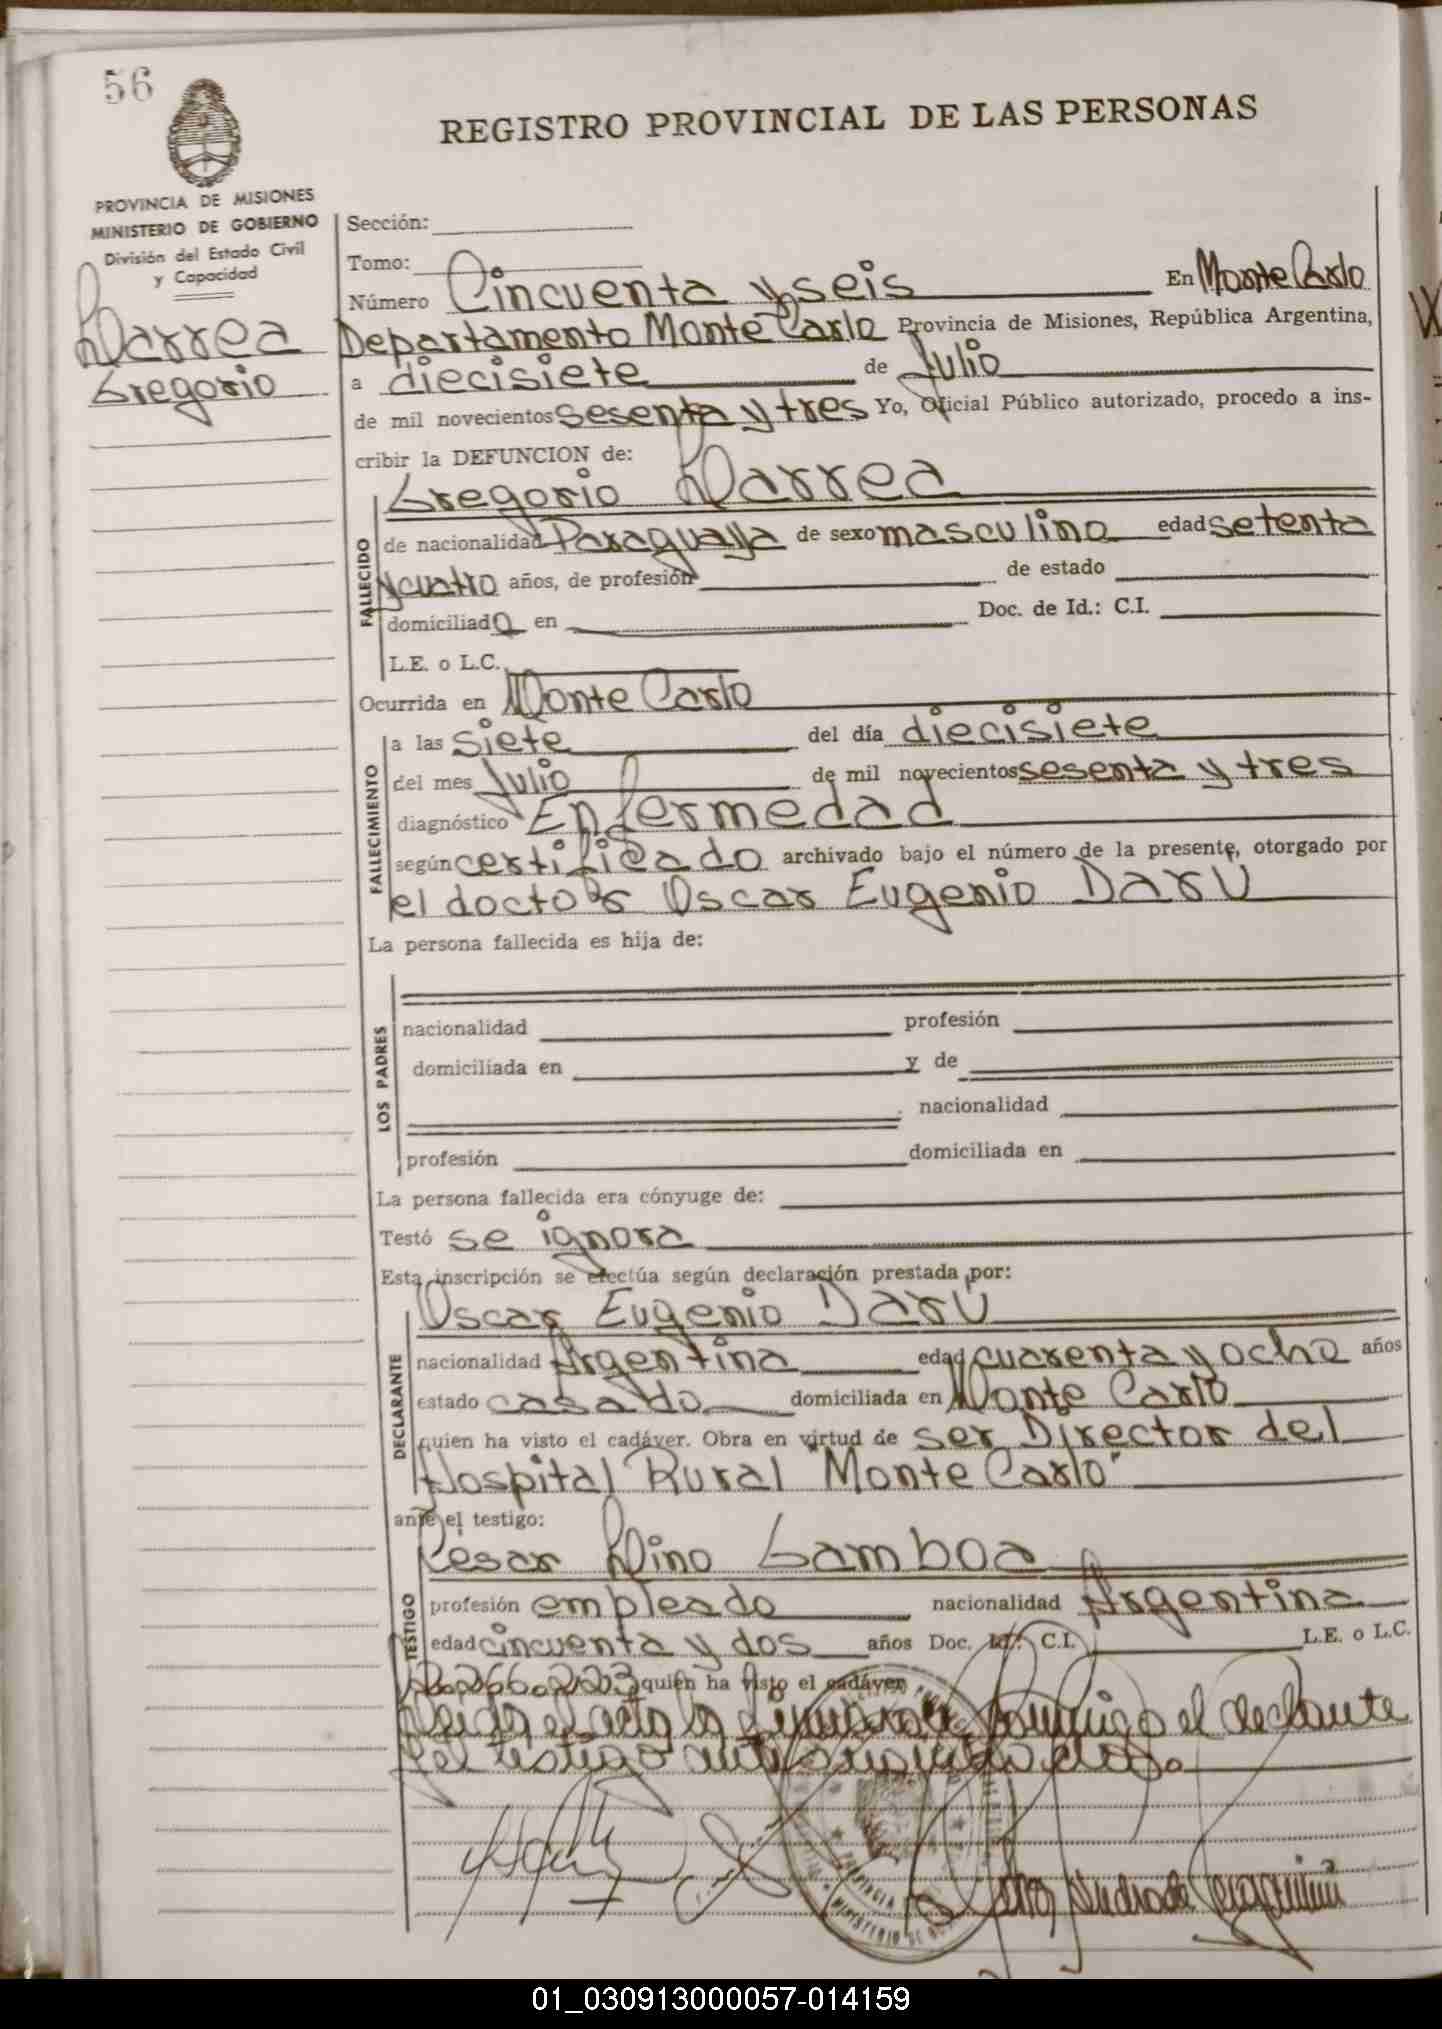 56
REGISTRO PROVINCIAL DE LAS PERSONAS
PROVINCIA DE MISIONES
MINISTERIO DE GOBIERNO
División del Estado Civil
y Capacidad
Larrea
Gregorio
Sección:
Tomo:
Número Cincuenta y seis En Monte Carlo
Departamento Monte Carlo Provincia de Misiones, República Argentina,
a diecisiete de Julio
de mil novecientos sesenta y tres Yo, Oficial Público autorizado, procedo a ins-
cribir la DEFUNCION de:
Gregorio Larrea
FALLECIDO
de nacionalidad Paraguaya de sexo masculino edad setenta
y cuatro años, de profesión de estado
domiciliado en Doc. de Id.: C.I.
L.E. o L.C.
Ocurrida en Monte Carlo
FALLECIMIENTO
a las siete del día diecisiete
del mes Julio de mil novecientos sesenta y tres
diagnóstico Enfermedad
según certificado archivado bajo el número de la presente, otorgado por
el doctor Oscar Eugenio Darú
La persona fallecida es hija de:
LOS PADRES
nacionalidad profesión
domiciliada en y de
nacionalidad
profesión domiciliada en
La persona fallecida era cónyuge de:
Testó se ignora
Esta inscripción se efectúa según declaración prestada por:
DECLARANTE
Oscar Eugenio Darú
nacionalidad Argentina edad cuarenta y ocho años
estado casado domiciliada en Monte Carlo
quien ha visto el cadáver. Obra en virtud de ser Director del
Hospital Rural "Monte Carlo"
ante el testigo:
TESTIGO
Cesar Lino Gamboa
profesión empleado nacionalidad Argentina
edad cincuenta y dos años Doc. Id.: C.I. L.E. o L.C.
2.266.223 quien ha visto el cadáver
Leida el acta la firmaron conmigo el declarante
y el testigo antes
01_030913000057-014159